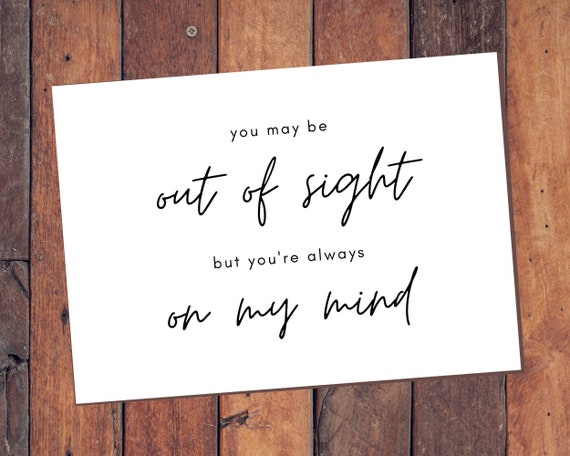 you may be
out of sight
but you're always
on my mind